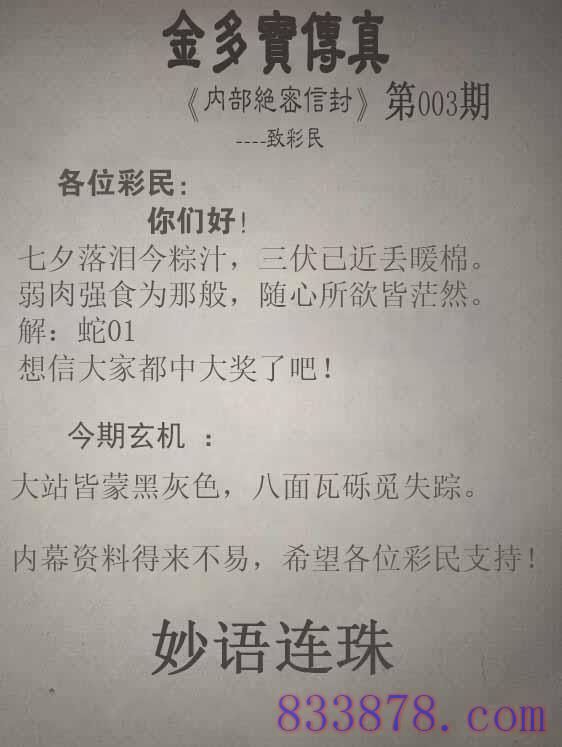 金多寶傳真
《内部絶密信封》第003期
----致彩民
各位彩民:
你们好!
七夕落泪今粽汁，三伏已近丢暖棉。
弱肉强食为那般，随心所欲皆茫然。
解：蛇01
想信大家都中大奖了吧!
今期玄机 :
大站皆蒙黑灰色，八面瓦砾觅失踪。
内幕资料得来不易，希望各位彩民支持!
妙语连珠
833878.com